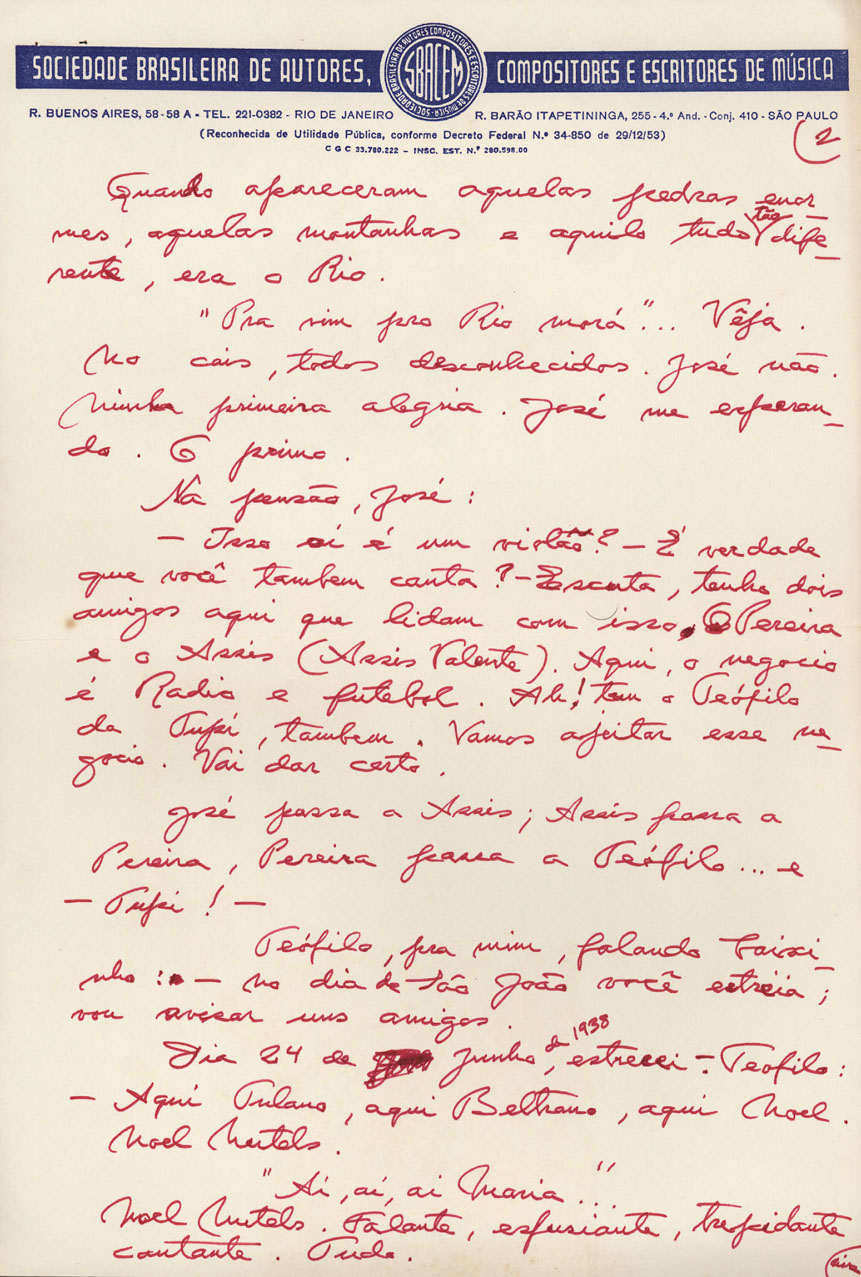 SOCIEDADE BRASILEIRA DE AUTORES, COMPOSITORES E ESCRITORES DE MÚSICA
SBACEM
SOCIEDADE BRASILEIRA DE AUTORES COMPOSITORES E ESCRITORES DE MÚSICA
R. BUENOS AIRES, 58-58 A - TEL. 221-0382 - RIO DE JANEIRO R. BARÃO ITAPETININGA, 255 - 4.º And. - Conj. 410 - SÃO PAULO
(Reconhecida de Utilidade Pública, conforme Decreto Federal N.º 34-850 de 29/12/53)
C G C 33.780.222 - INSC. EST. N.º 280.598.00
2
Quando apareceram aquelas pedras enor-
mes, aquelas montanhas e aquilo tudo tão dife-
rente, era o Rio.
"Pra vim pro Rio morá"... Vêja.
No cais, todos desconhecidos. José não.
Minha primeira alegria. José me esperan-
do. O primo.
Na pensão, José:
- Isso aí é um violão? - É verdade
que você tambem canta? - Escuta, tenho dois
amigos aqui que lidam com isso, O Pereira
e o Assis (Assis Valente). Aqui, o negocio
é Radio e futebol. Ah! tem o Teófilo
da Tupí, tambem. Vamos ajeitar esse ne-
gocio. Vai dar certo.
José passa a Assis; Assis passa a
Pereira, Pereira passa a Teófilo... e
- Tupí! -
Teófilo, pra mim, falando baixi-
nho: - no dia de São João você estréia;
vou avisar uns amigos.
Dia 24 de Junho, de 1938, estreei - Teofilo:
- Aquí Fulano, aqui Beltrano, aqui Noel.
Noel Nutels.
"Ai, aí, ai Maria..."
Noel Nutels. Falante, esfusiante, trepidante
cantante. Tudo.